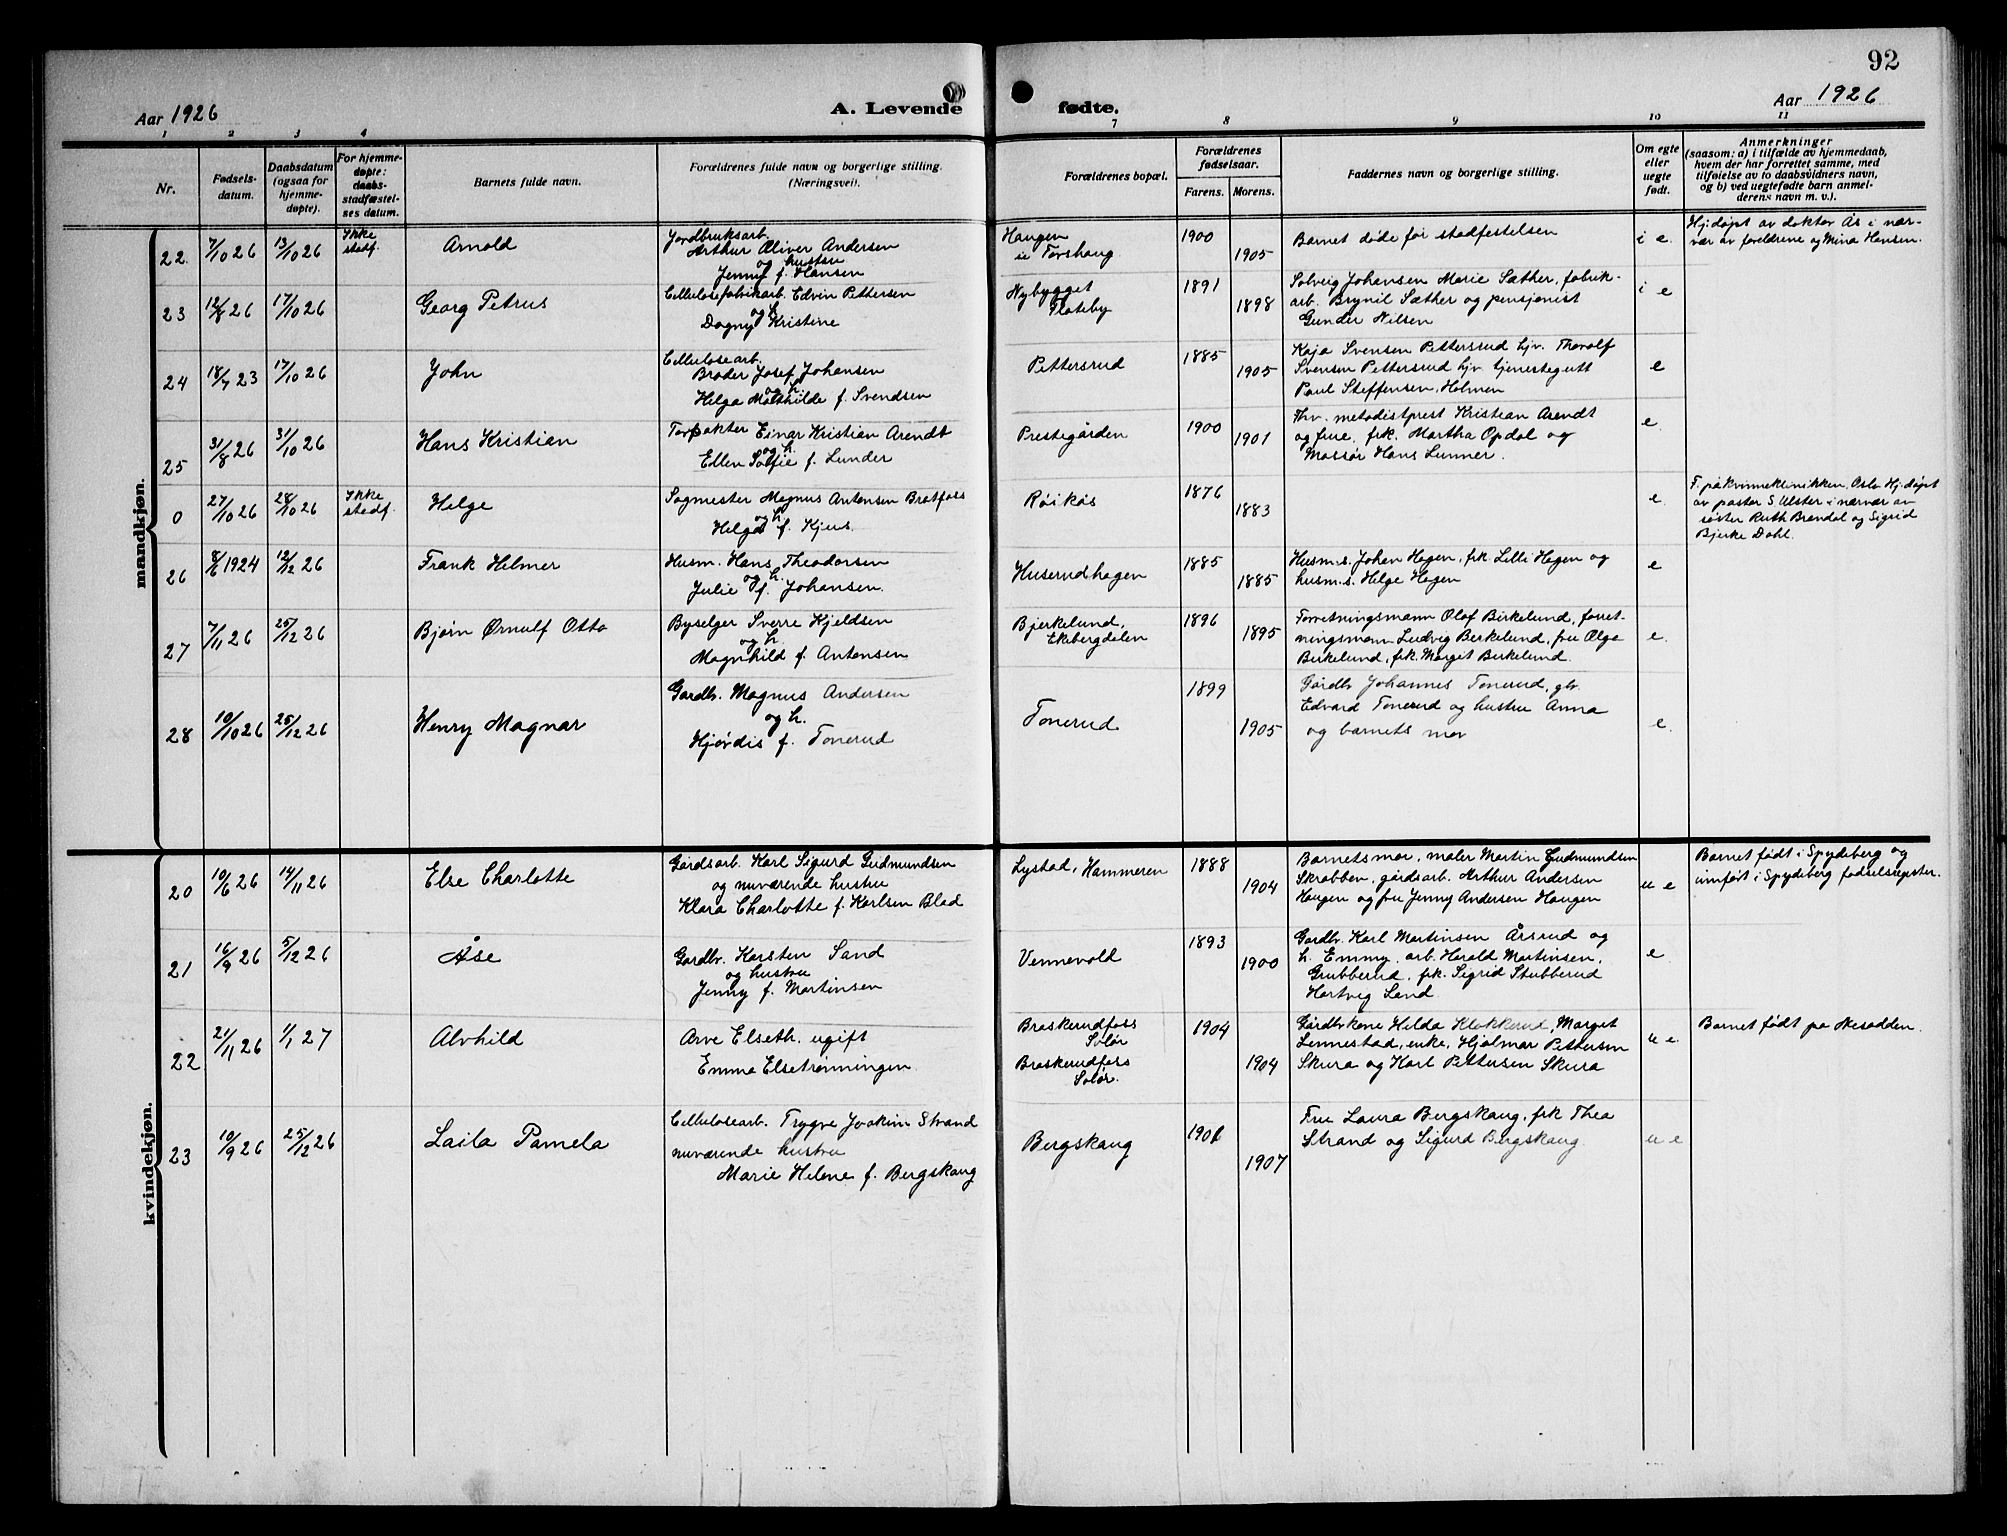 92
Aar 1926
A. Levende
fødte.
Aar 1926
1 2 3 4
7 8 9 10 11
Nr.
Fødsels-
datum.
Daabsdatum
(ogsaa for
hjemme-
døpte).
For hjemme-
døpte:
daabs-
stadfæstel-
ses datum.
Barnets fulde navn.
Forældrenes fulde navn og borgerlige stilling.
(Næringsvei).
Forældrenes bopæl.
Forældrenes
fødselsaar.
Farens. Morens.
Faddernes navn og borgerlige stilling.
Om egte
eller
uegte
født.
Anmerkninger
(saasom: a) i tilfælde av hjemmedaab,
hvem der har forrettet samme, med
tilføielse av to daabsvidners navn,
og b) ved uegtefødte barn anmel-
derens navn m. v.).
mandkjøn.
22. 7/10 26 13/10 26 Ikke
stadf. Arnold
Jordbruksarb.
Arthur Oliver Andersen
og hustru
Jenny f. Hansen
Haugen
Forshaug
1900 1905
Barnet døde før stadfestelsen
i e.
Hj.døpt av doktor Ås i nær-
vær av foreldrene og Mina Hansen.
23 12/8 26 17/10 26 Georg Petrus
Cellulosefabrikarb. Edvin Pettersen
og h.
Dagny Kristine
Nybygget
Flateby
1891 1898
Solveig Johansen Marie Sæther, fabrik-
arb. Brynil Sæther og pensjonist
Gunder Nilsen
i e
24 18/7 23 17/10 26 John
Cellulosearb.
Broder Josef Johansen
og h.
Helga Mathilde f. Svendsen
Pettersrud
1885 1905
Kaja Svensen Pettersrud hjv. Thorolf
Svensen Pettersrud hjv. tjenestegutt
Paul Steffensen, Holmen
e
25 31/8 26 31/10 26 Hans Kristian
Forpakter Einar Kristian Arendt
og h.
Ellen Sofie f. Lunder
Prestegården
1900 1901
Fhv. metodistprest Kristian Arendt
og frue, frk. Martha Opdal og
Massør Hans Lunner.
e.
0 27/10 26 28/10 26 Ikke
stadf. Helge
Sagmester Magnus Antonsen Bratfoss
og h.
Helga f. Kjus.
Røikås
1876 1883
e
F. på kvinneklinikken, Oslo Hj.døpt
av pastor S. Ulster i nærvær av
søster Ruth Brendal og Sigrid
Bjerke Dahl.
26 8/6 1924 12/12 26 Frank Helmer
Husm. Hans Theodorsen
og h.
Julie f. Johansen.
Huserudhagen
1885 1885
Husm.s. Johan Hagen, frk. Lilli Hagen og
husm.s. Helge Hagen
e
27 7/11 26 25/12 26 Bjørn Ørnulf Otto
Byselger Sverre Kjeldsen
og h.
Magnhild f. Antonsen
Bjerkelund,
Ekebergdalen
1896 1895
Forretningsmann Olaf Birkelund, forret-
ningsmann Ludvig Berkelund, fru Olga
Birkelund, frk. Marget Birkelund.
e.
28 10/10 26 25/12 26 Henry Magnar
Gardbr. Magnus Andersen
og h.
Hjørdis f. Tonerud
Tonerud
1899 1905
Gårdbr Johannes Tonerud, gbr.
Edvard Tonerud og hustru Anna
og barnets mor
e.
kvindekjøn.
20 10/6 26 14/11 26 Else Charlotte
Gårdsarb. Karl Sigurd Gudmundsen
og nuværende hustru
Klara Charlotte f. Karlsen Blad
Lystad, Hammeren
1888 1904
Barnets mor, maler Martin Gudmundsen
Skrabben, gårdsarb. Arthur Andersen
Haugen og fru Jenny Andersen Haugen
u e
Barnet født i Spydeberg og
innført i Spydeberg fødselsregister.
21 16/9 26 5/12 26 Åse
Gardbr. Karsten Sand
og hustru
Jenny f. Martinsen
Vennevold
1893 1900
Gardbr. Karl Martinsen Årsrud og
h. Emmy, arb. Harald Martinsen,
Grubberud, frk. Sigrid Stubberud
Hartvig Sand.
e
22 21/11 26 1/1 27 Alvhild
Arve Elseth. ugift
Emma Elsetrønningen.
Braskerudfoss
Solør
Braskerudfoss
Solør.
1904 1904
Gårdbrkone Hilda Klokkerud, Marget
Lennestad, enke, Hjalmar Pettersen
Skura og Karl Pettersen Skura
u e.
Barnet født på Nesodden.
23 10/9 26 25/12 26 Laila Pamela
Cellulosearb. Trygve Joakim Strand
nuværende hustru
Marie Helene f. Bergskaug
Bergskaug
1901 1907
Fru Laura Bergskaug, frk Thea
Strand og Sigurd Bergskaug.
u e